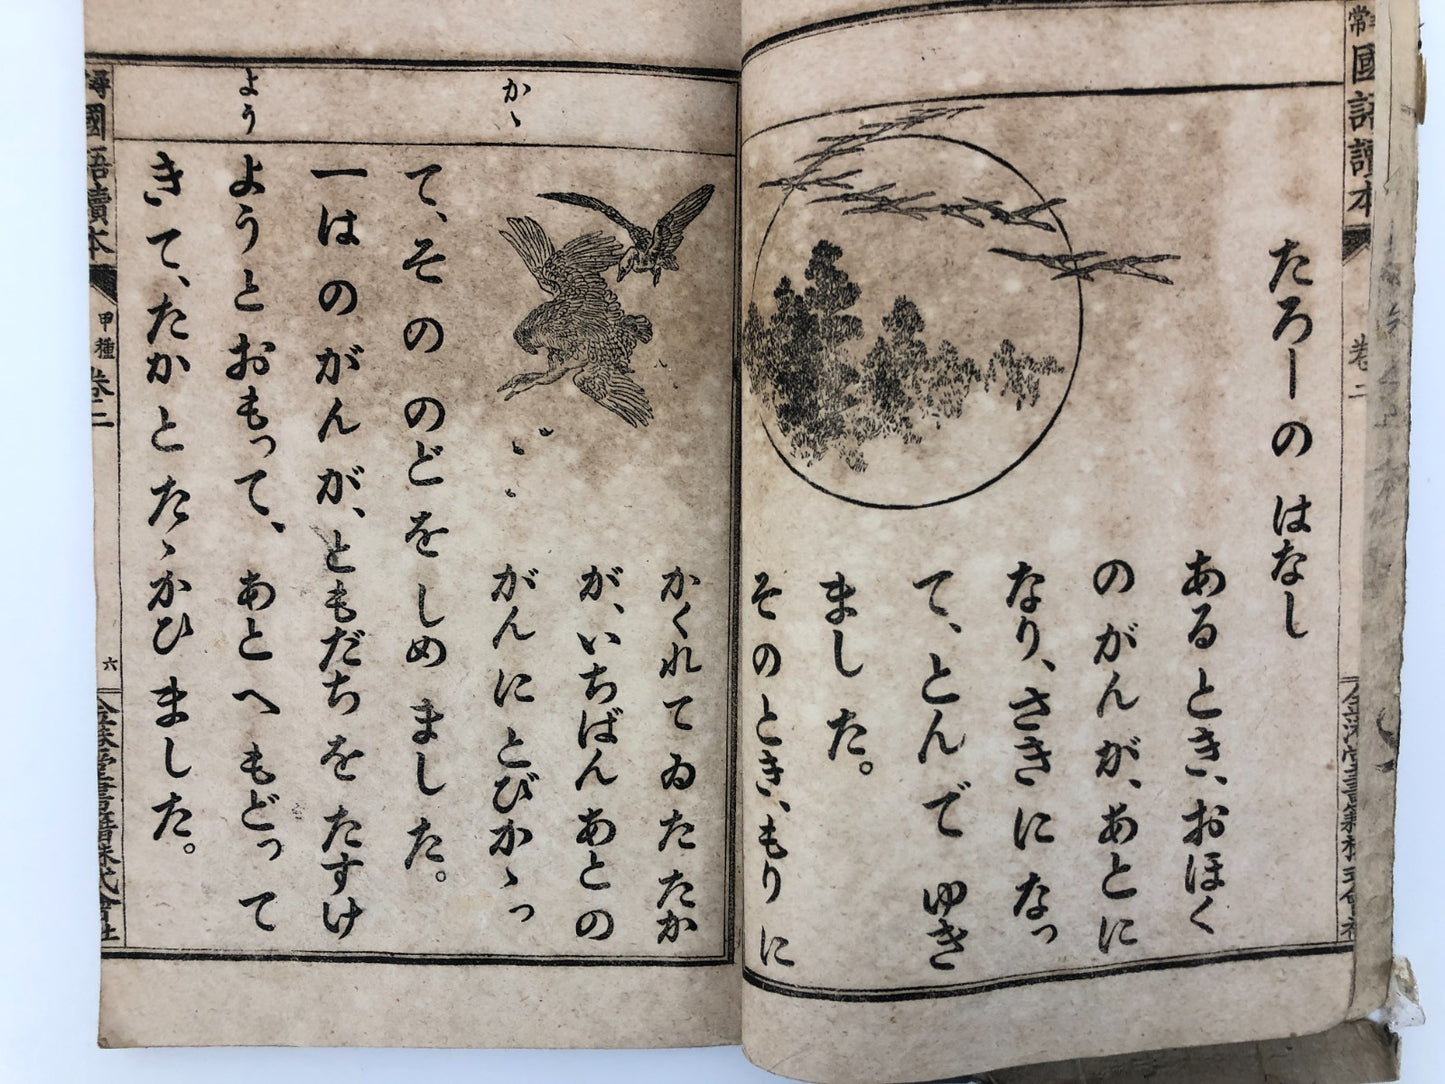 國語讀本
卷二
たろーの はなし
あるとき、おほく
のがんが、あとに
なり、さきになっ
て、とんで ゆき
ました。
そのとき、もりに
かくれてゐたたか
が、いちばんあとの
がんに とびかゝっ
かゝ
て、その のどを しめ ました。
一はのがんが、ともだちを たすけ
ようとおもって、あとへ もどって
よう
きて、たかと たゝかひ ました。
尋 國語讀本
甲種
卷二
六